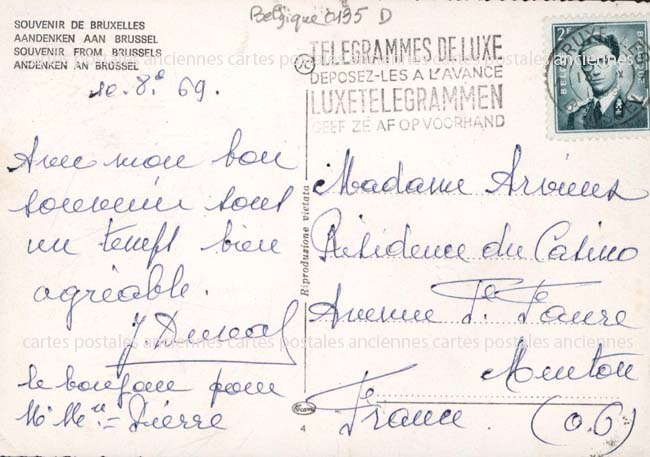 Belgique 0135 D
SOUVENIR DE BRUXELLES
AANDENKEN AAN BRUSSEL
SOUVENIR FROM BRUSSELS
ANDENKEN AN BRUSSEL
10.8.69.
TELEGRAMMES DE LUXE
DEPOSEZ-LES A L'AVANCE
LUXETELEGRAMMEN
GEEF ZE AF OP VOORHAND
2F
BELGIE BELGIQUE
Avec mon bon
souvenir
un temps bien
agréable.
le bonjour pour
Mr Mme Pierre
Riproduzione vietata
4
Madame
Résidence du Casino
Avenue Faure
Menton
France. (06)
cartes postales anciennes cartes postales anciennes cartes postales anciennes